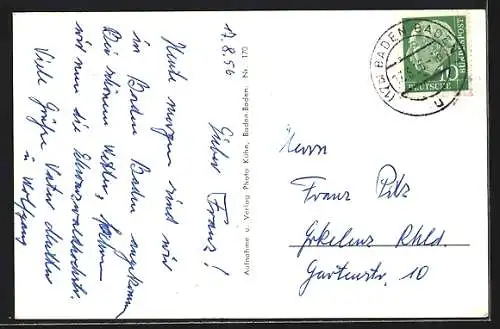 17.8.56
Lieber Franz!
Heute morgen sind wir
in Baden Baden angekommen
Bei schönem Wetter, fahren
wir nun die Schwarzwaldhochstr.
Viele Grüße Vater Mutter
u Wolfgang
Aufnahme u. Verlag Photo Kühn, Baden-Baden. Nr. 170
BADEN BADEN
DEUTSCHE BUNDESPOST
10
Herrn
Franz Pilz
Erkelenz Rhld.
Gartenstr. 10